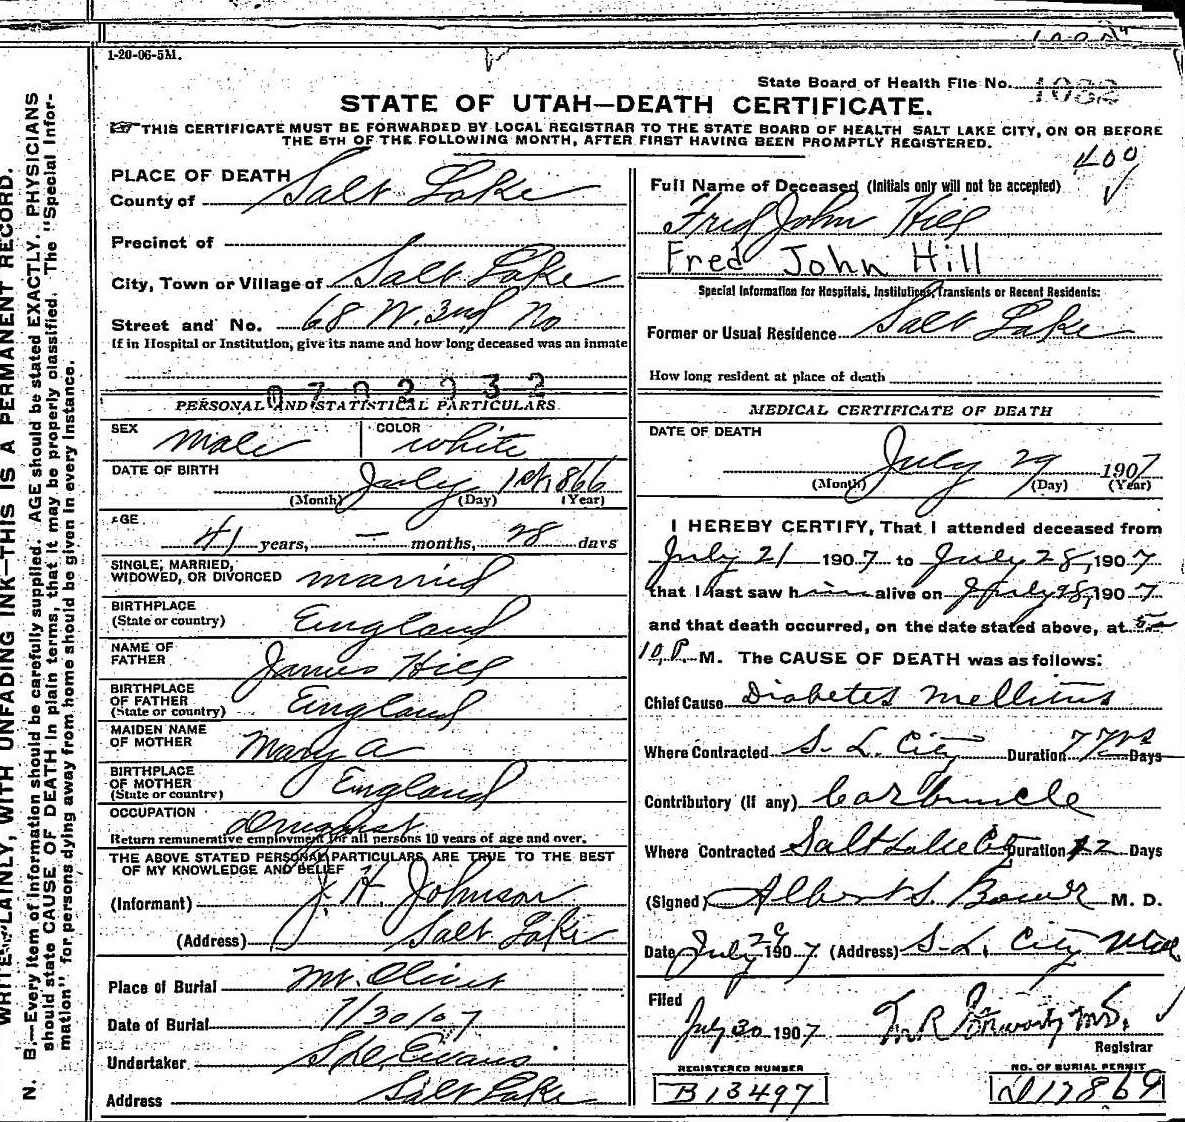 1-20-06-5M.
State Board of Health File No. 1082
STATE OF UTAH—DEATH CERTIFICATE.
THIS CERTIFICATE MUST BE FORWARDED BY LOCAL REGISTRAR TO THE STATE BOARD OF HEALTH SALT LAKE CITY, ON OR BEFORE
THE 5TH OF THE FOLLOWING MONTH, AFTER FIRST HAVING BEEN PROMPTLY REGISTERED.
400
PLACE OF DEATH
County of Salt Lake
Precinct of
City, Town or Village of Salt Lake
Street and No. 68 W. 2nd No
If in Hospital or Institution, give its name and how long deceased was an inmate
PERSONAL AND STATISTICAL PARTICULARS
SEX Male COLOR White
DATE OF BIRTH July 1st, 1866
(Month) (Day) (Year)
AGE
41 years, — months, 28 days
SINGLE, MARRIED,
WIDOWED, OR DIVORCED married
BIRTHPLACE
(State or country) England
NAME OF
FATHER James Hill
BIRTHPLACE
OF FATHER
(State or country) England
MAIDEN NAME
OF MOTHER Mary A
BIRTHPLACE
OF MOTHER
(State or country) England
OCCUPATION Druggist
Return remunerative employment for all persons 10 years of age and over.
THE ABOVE STATED PERSONAL PARTICULARS ARE TRUE TO THE BEST
OF MY KNOWLEDGE AND BELIEF
(Informant) J. H. Johnson
(Address) Salt Lake
Place of Burial Mt. Olivet
Date of Burial 7/30/07
Undertaker Evans
Address Salt Lake
Full Name of Deceased (Initials only will not be accepted)
Fred John Hill
Fred John Hill
Special Information for Hospitals, Institutions, Transients or Recent Residents:
Former or Usual Residence Salt Lake
How long resident at place of death
MEDICAL CERTIFICATE OF DEATH
DATE OF DEATH
July 29 1907
(Month) (Day) (Year)
I HEREBY CERTIFY, That I attended deceased from
July 21 1907 to July 28, 1907
that I last saw him alive on July 28, 1907
and that death occurred, on the date stated above, at
10 P. M. The CAUSE OF DEATH was as follows:
Chief Cause Diabetes mellitus
Where Contracted S. L. City Duration 7 yrs Days
Contributory (if any) Carbuncle
Where Contracted Salt Lake City Duration 12 Days
(Signed) Albert S. Bower M. D.
Date July 29 1907 (Address) S. L. City Utah
Filed
July 30 1907 M.D.
Registrar
REGISTERED NUMBER
B13497
NO. OF BURIAL PERMIT
D17869
WRITE PLAINLY, WITH UNFADING INK—THIS IS A PERMANENT RECORD.
N. B.—Every item of information should be carefully supplied. AGE should be stated EXACTLY. PHYSICIANS
should state CAUSE OF DEATH in plain terms, that it may be properly classified. The "Special Infor-
mation" for persons dying away from home should be given in every instance.